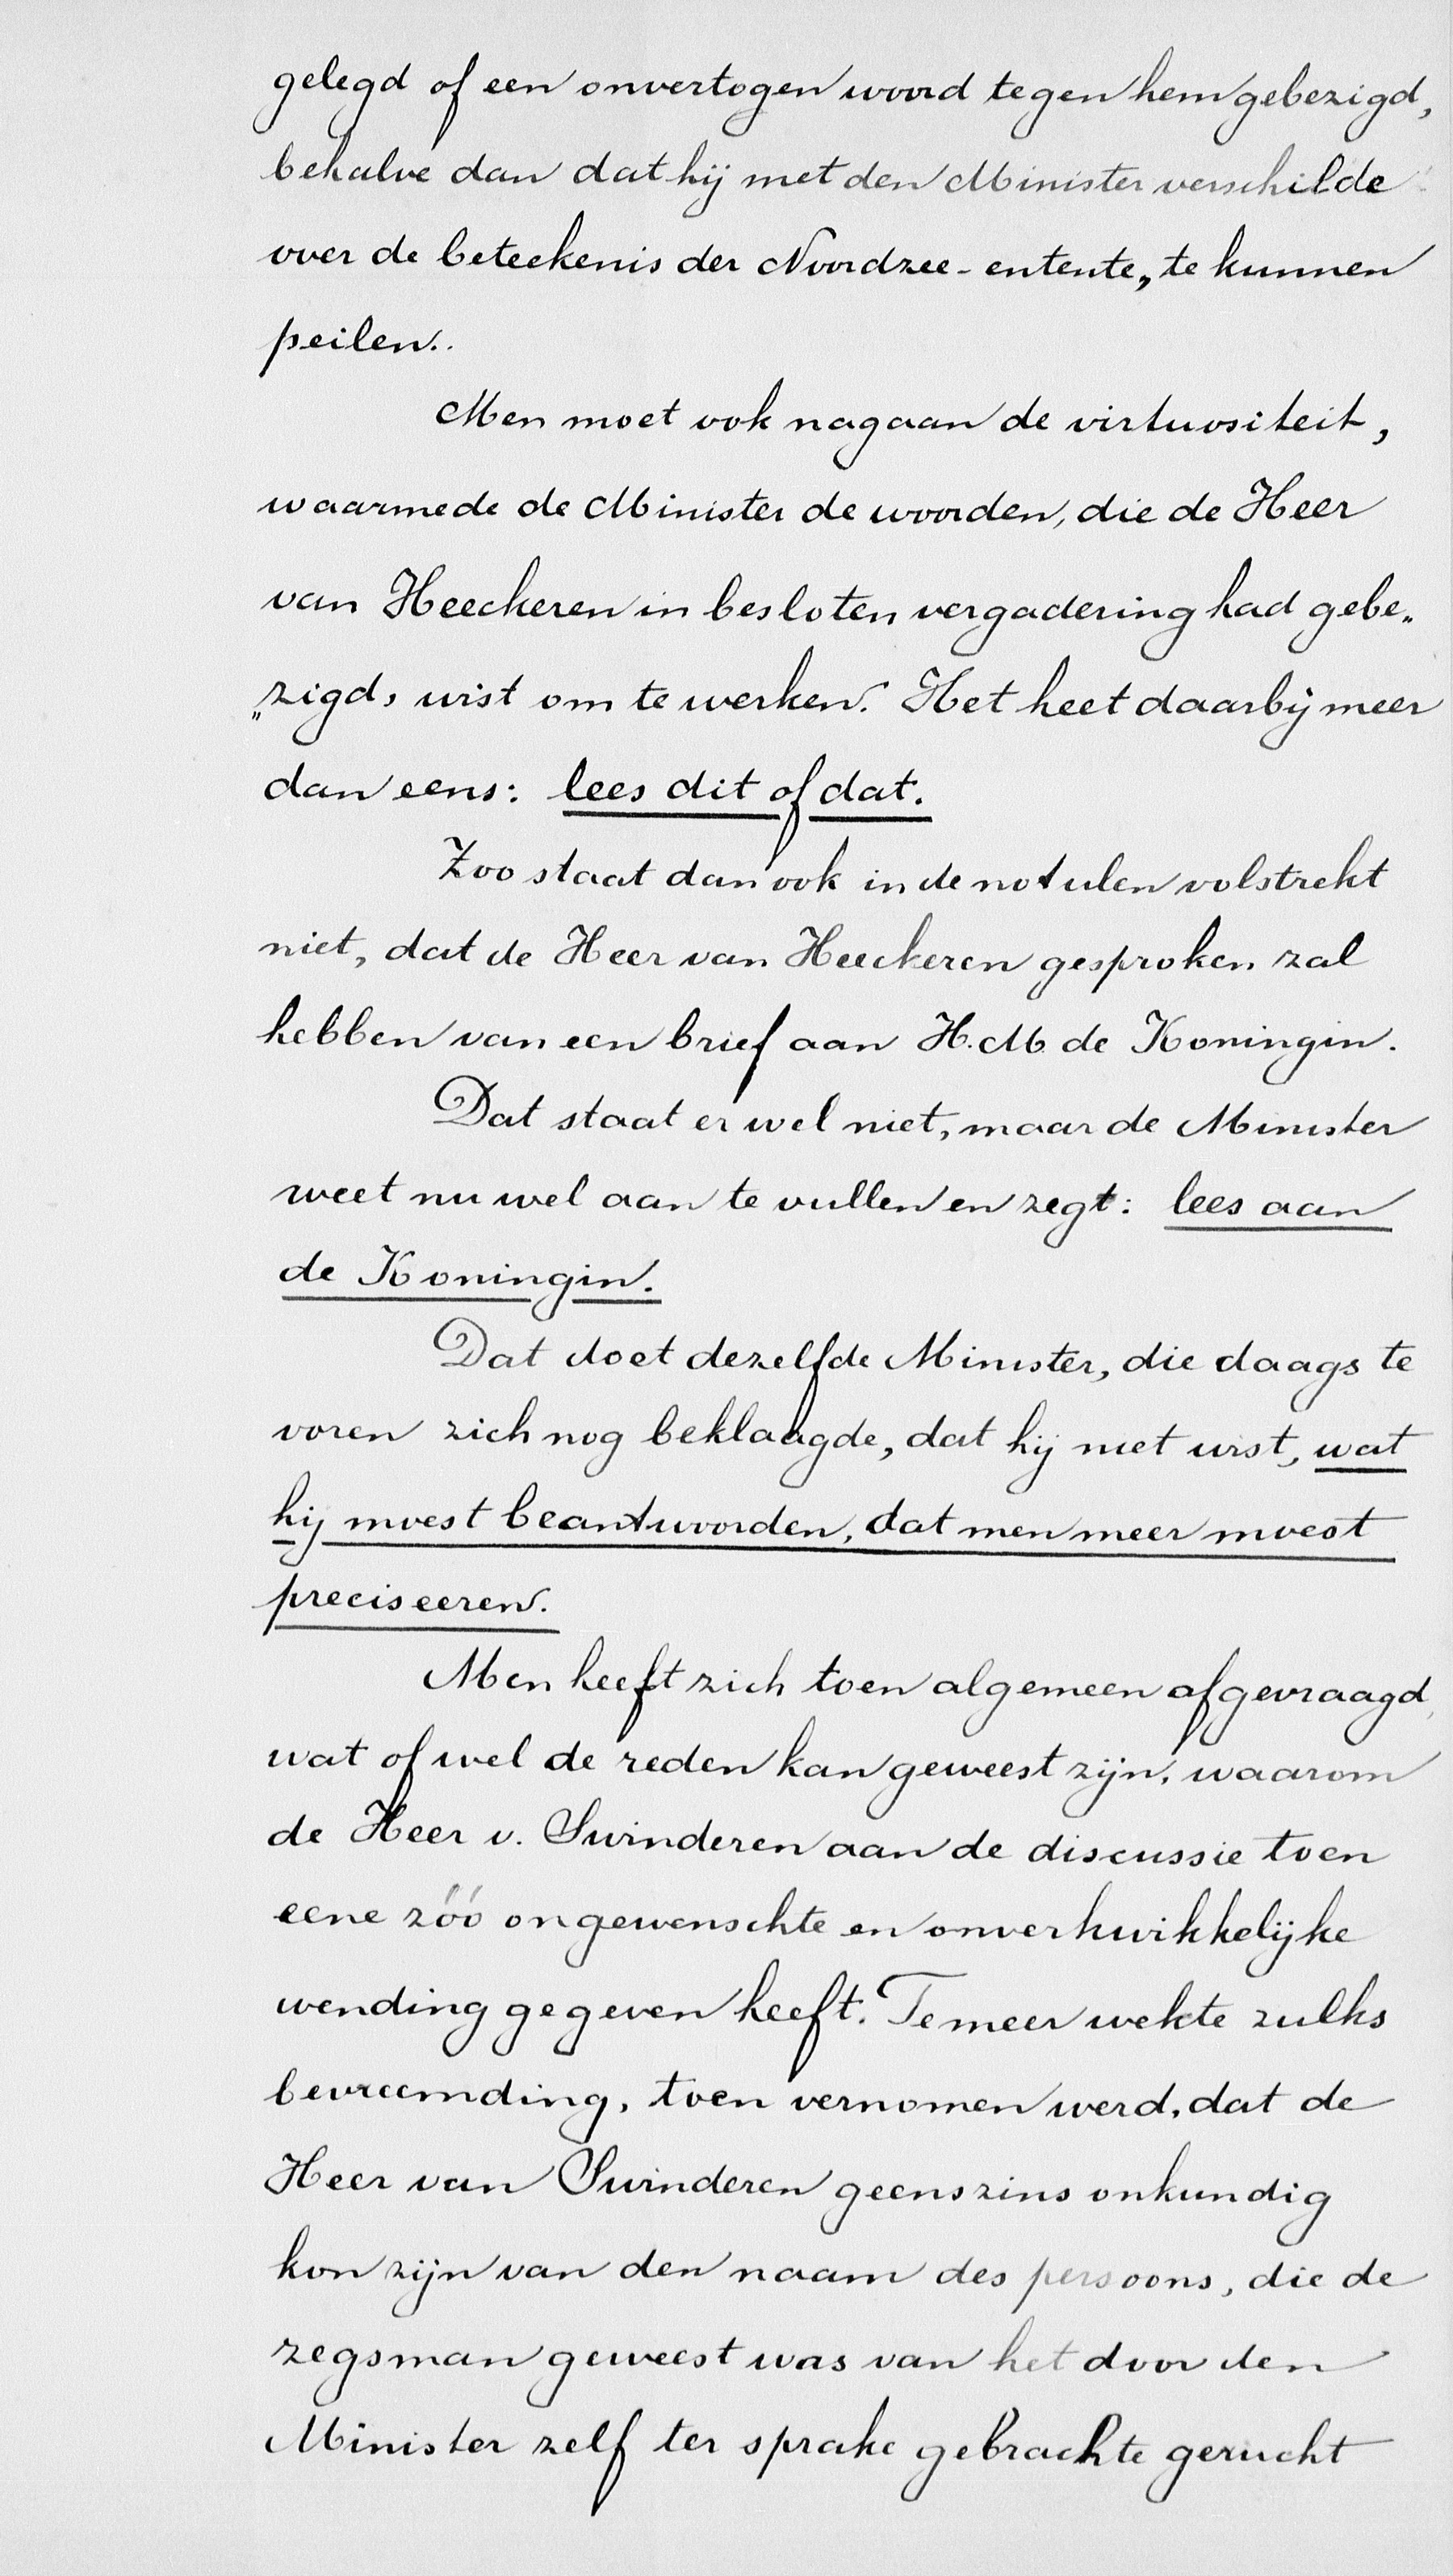 gelegd of een onvertogen woord tegen hem gebezigd,
behalve dan dat hij met den Minister verschilde
over de beteekenis der Noordzee-entente„ te kunnen
peilen..
Men moet ook nagaan de virtuositeit,
waarmede de Minister de woorden, die de Heer
van Heeckeren in besloten vergadering had gebe„
„zigd, wist om te werken. Het heet daarbij meer
dan eens: lees dit of dat.
Zoo staat dan ook in de notulen volstrekt
niet, dat de Heer van Heeckeren gesproken zal
hebben van een brief aan H.M. de Koningin.
Dat staat er wel niet, maar de Minister
weet nu wel aan te vullen en zegt: lees aan
de Koningin.
Dat doet dezelfde Minister, die daags te
voren zich nog beklaagde, dat hij niet wist, wat
hij moest beantwoorden, dat men meer moest
preciseeren.
Men heeft zich toen algemeen afgevraagd,
wat of wel de reden kan geweest zijn, waarom
de Heer v. Swinderen aan de discussie toen
eene zóó ongewenschte en onverkwikkelijke
wending gegeven heeft. Te meer wekte zulks
bevreemding, toen vernomen werd, dat de
Heer van Swinderen geenszins onkundig
kon zijn van den naam des persoons, die de
zegsman geweest was van het door den
Minister zelf ter sprake gebrachte gerucht